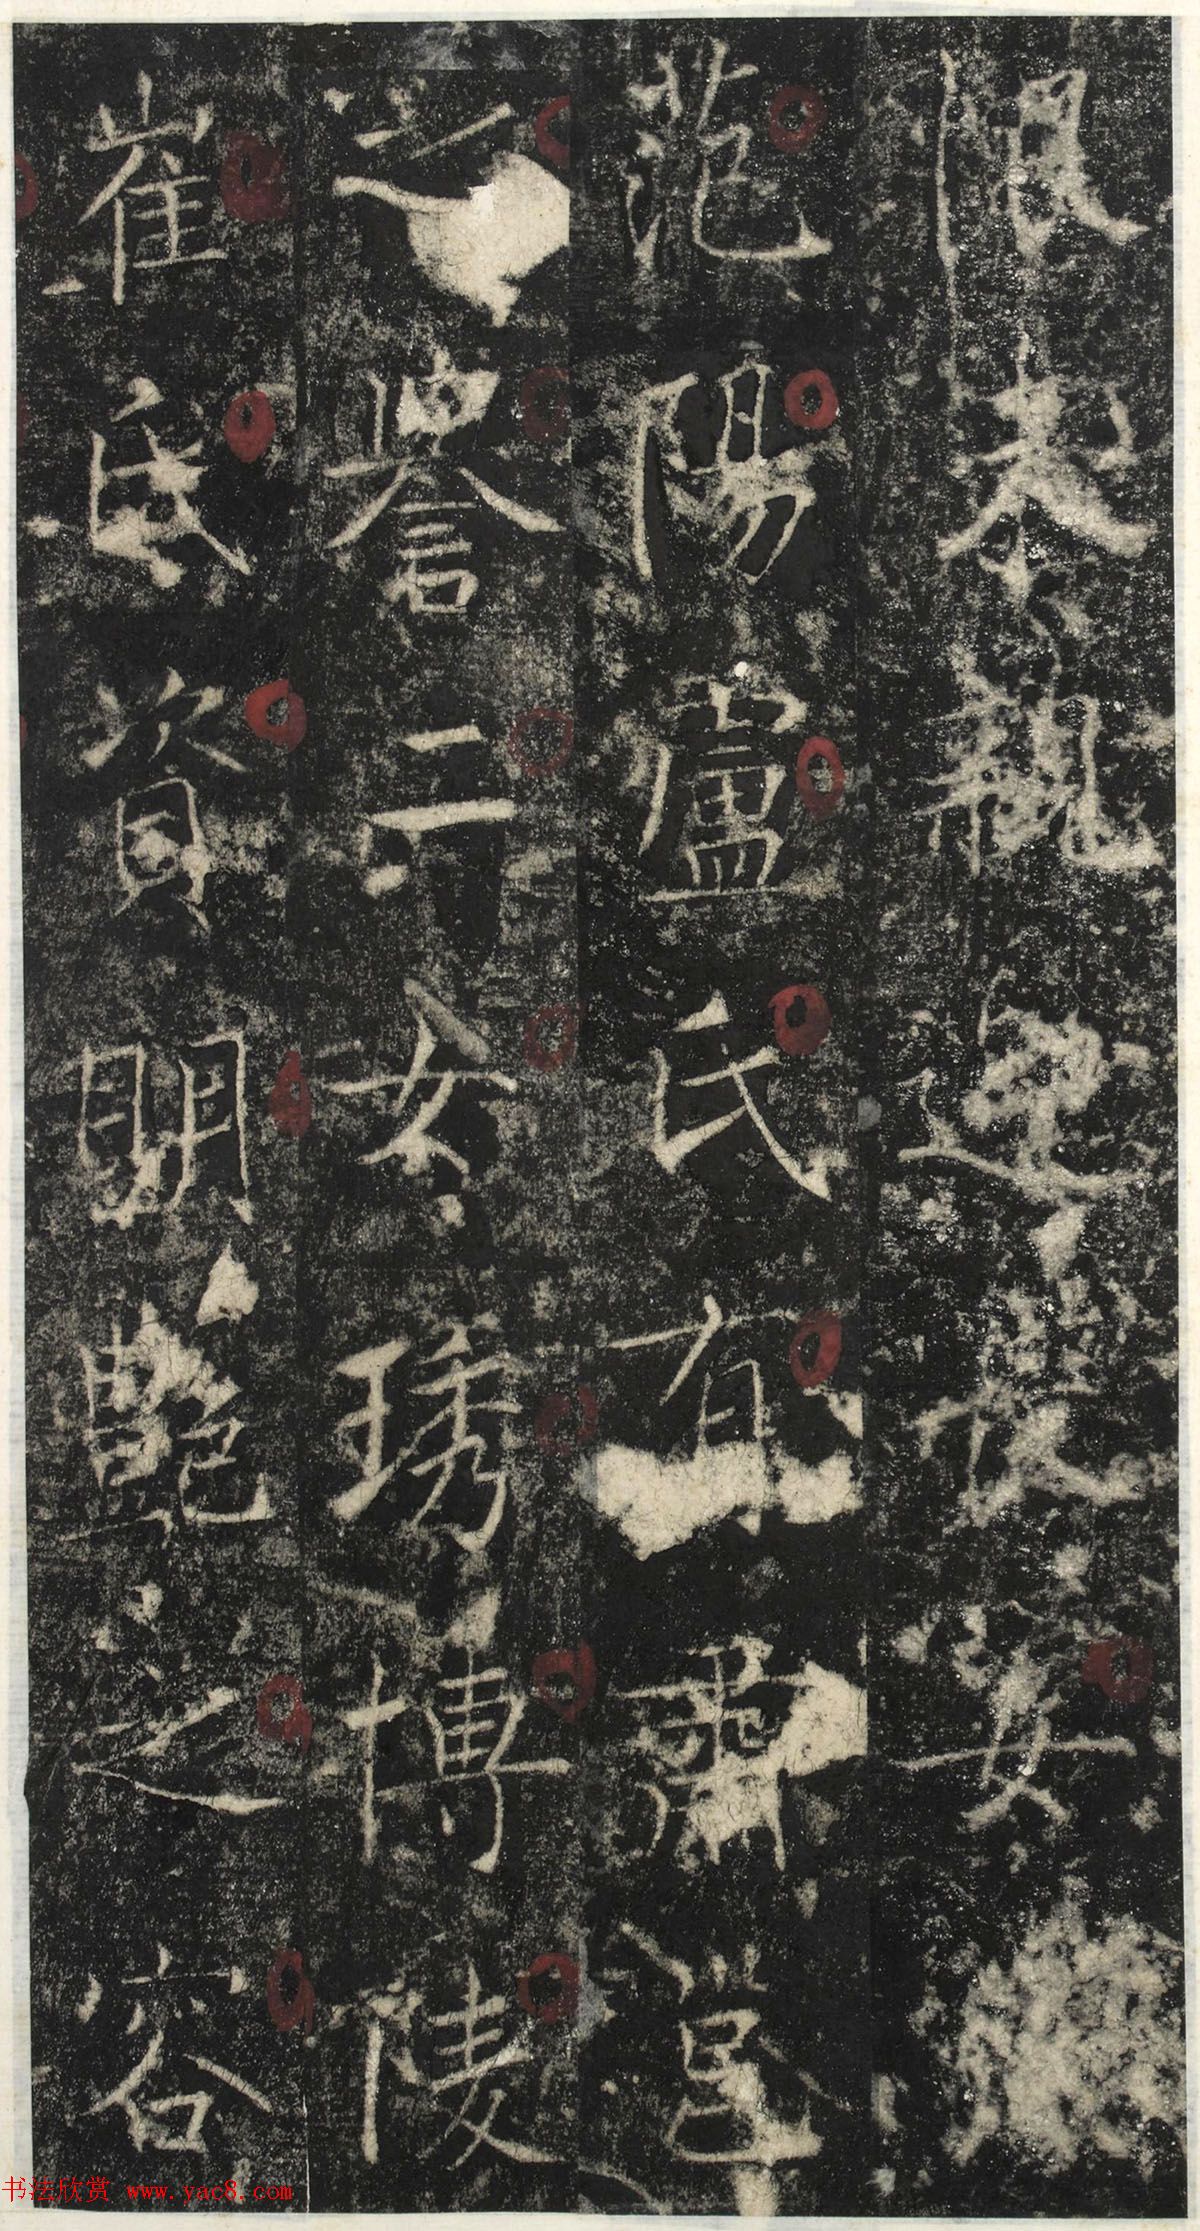 限未親迎女
范陽盧氏有肅邕
之譽二女琇博陵
崔氏資明艷之容
书法欣赏 www.yac8.com